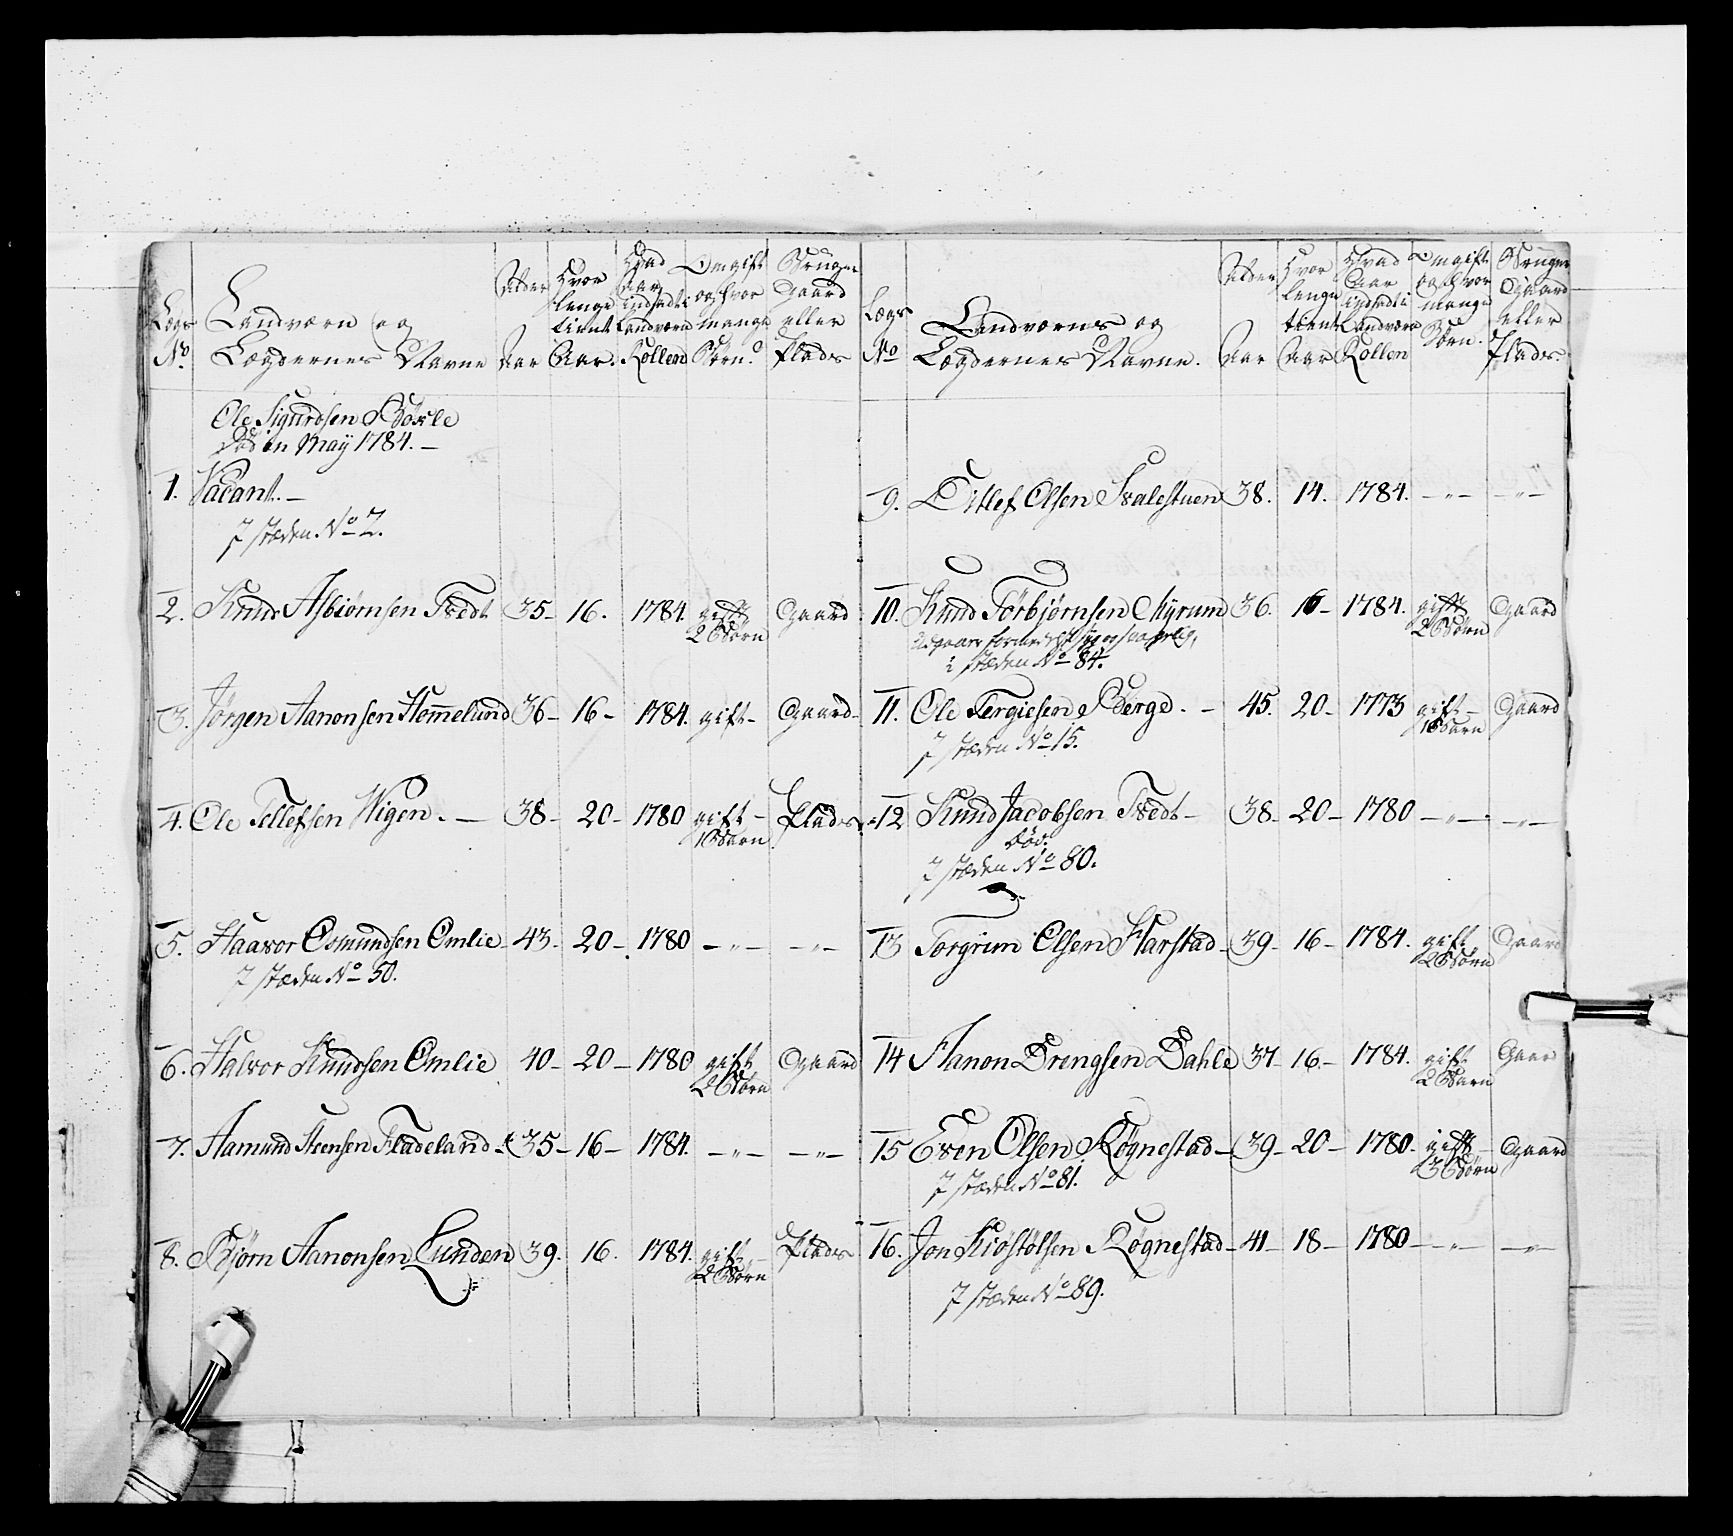 Lægs No
Landværn og
Lægdernes Navne
Alder Aar
Hvor længe tient Aar.
Hvad Aar indsadt i Landværn Rollen
Om gift og hvor mange Børn?
Bruger Gaard eller Plads
Ole Sigurdsen Bøxle
død in May 1784. –
1. Vacant. –
I stæden No 2.
2. Knud Asbiørnsen Tvedt 35– 16. 1784. gift 2 Børn Gaard
3. Jørgen Aanonsen Hommelund 36– 16– 1784. gift– Gaard–
4. Ole Tellefsen Wigen. – 38– 20– 1780 gift– 1 Barn Plads
5. Haavor Osmundsen Omlie 43– 20– 1780 – „ – – „ –
I stæden No 50.
6. Halvor Knudsen Omlie 40– 20– 1780 gift 2 Børn Gaard
7. Aamund Steensen Fladeland– 35– 16– 1784. – „ – – „ –
8. Bjørn Aanonsen Lunden 39. 16. 1784. gift– 2 Børn Plads
Lægs No
Landværns og
Lægdernes Navne.
Alder Aar
Hvor længe tient Aar
Hvad Aar indsadt i Landværn Rollen
Om gift og hvor mange Børn.
Bruger Gaard eller Plads.
9. Ditlef Olsen Svalestuen 38. 14. 1784. – „ – – „ –
10. Knud Torbjørnsen Myrum 36. 16– 1784. gift 2 Børn Gaard
Udgaar formedelst
i stæden No 84.
11. Ole Tergiesen Berge. – 45. 20– 1773 gift– 1 Barn Gaard
I stæden No 15.
12 Knud Jacobsen Tvedt– 38– 20– 1780 – „ – – „ –
død.
I stæden No 80.
13 Torgrim Olsen Harstad– 39– 16– 1784. gift 2 Børn Gaard
14 Aanon Drengsen Dahle 37– 16– 1784. gift 2 Barn Gaar
15 Even Olsen Røgnestad– 39– 20– 1780– gift– 3 Børn Gaard
I stæden No 81.
16. Jon Kiøstølsen Røgnestad– 41– 18– 1780– – „ – – „ –
I stæden No 89.